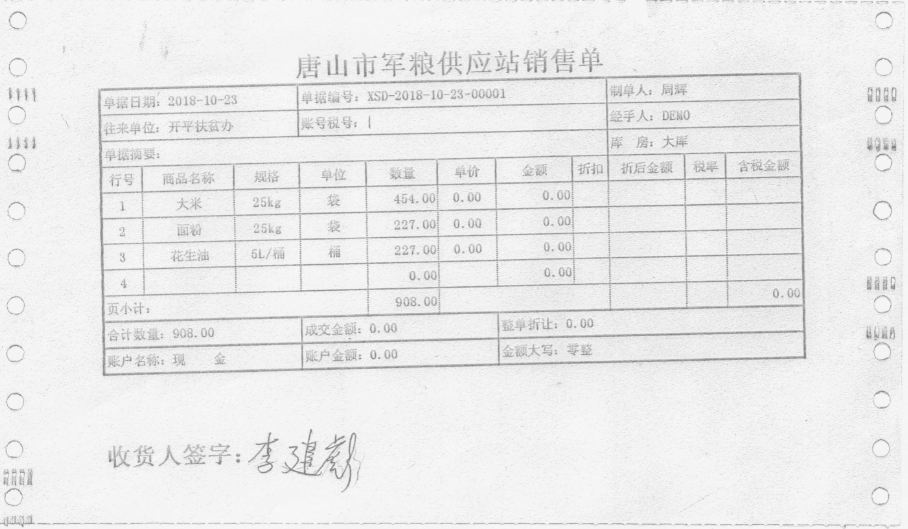 唐山市军粮供应站销售单
单据日期: 2018-10-23 单据编号: XSD-2018-10-23-00001 制单人: 周辉
往来单位: 开平扶贫办 账号税号: 经手人: DEMO
单据摘要: 库 房: 大库
行号 商品名称 规格 单位 数量 单价 金额 折扣 折后金额 税率 含税金额
1 大米 25kg 袋 454.00 0.00 0.00
2 面粉 25kg 袋 227.00 0.00 0.00
3 花生油 5L/桶 桶 227.00 0.00 0.00
4 0.00 0.00
页小计: 908.00 0.00
合计数量: 908.00 成交金额: 0.00 整单折让: 0.00
账户名称: 现 金 账户金额: 0.00 金额大写: 零整
收货人签字: 李建彪